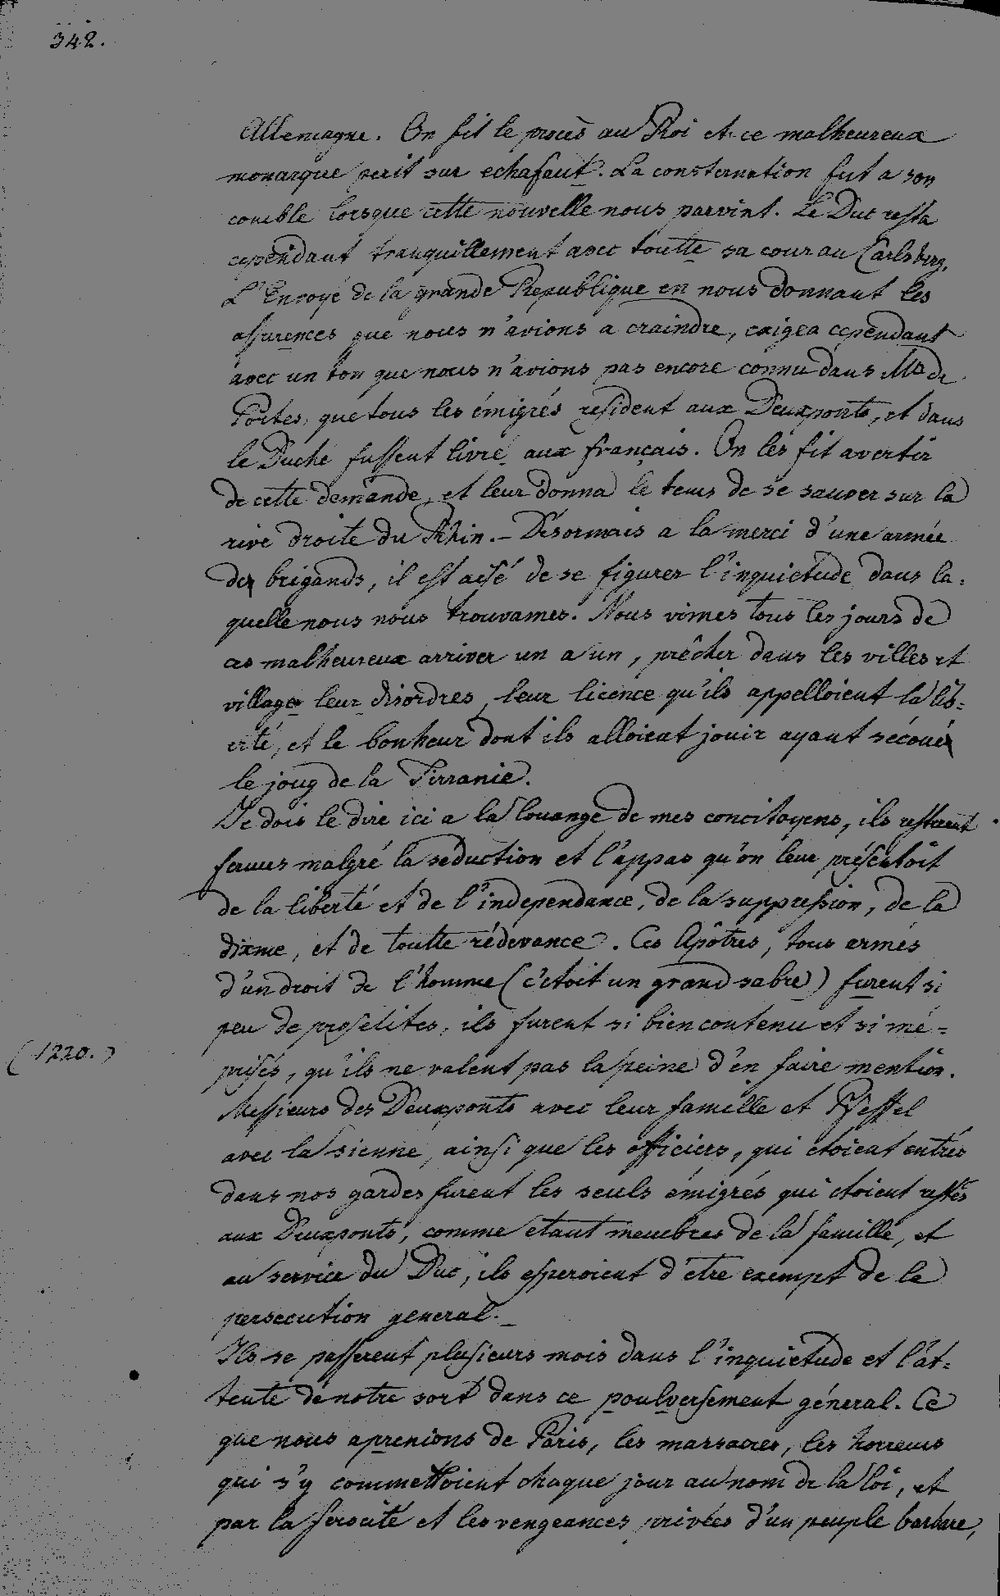 342.
Allemagne. On fit le procès au Roi et ce malheureux
monarque perit sur echafaut. La consternation fut a son
comble lorsque cette nouvelle nous parvint. Le Duc resta
cependant tranquillement avec toutte sa cour au Carlsberg.
L'Envoyé de la grande Republique en nous donnant les
assurences que nous n'avions a craindre, exigea cependant
avec un ton que nous n'avions pas encore connu dans Mr de
Portes, que tous les émigrés resident aux Deuxponts, et dans
le Duché fussent livré aux français. On les fit avertir
de cette demande, et leur donna le tems de se sauver sur la
rive droite du Rhin. – Désormais a la merci d'une armée
de brigands, il est aisé de se figurer l'inquietude dans la=
quelle nous nous trouvames. Nous vimes tous les jours de
ces malheureux arriver un a un, prêcher dans les villes et
village leur disordres, leur licence qu'ils appelloient la lib=
erté, et le bonheur dont ils alloient jouir ayant sécoué
le joug de la Tirranie.
Je dois le dire ici a la louange de mes concitoyens, ils resterent
fermes malgré la seduction et l'appas qu'on leur présentoit
de la liberté et de l'independance, de la suppression, de la
dixme, et de toutte rédevance. Ces Apôtres, tous armés
d'un droit de l'homme (c'étoit un grand sabre) furent si
peu de proselites, ils furent si bien contenu et si mé=
(1220.)
prisés, qu'ils ne valent pas la peine d'en faire mention.
Messieurs des Deuxponts avec leur famille et Wessel
avec la sienne, ainsi que les officiers, qui étoient entrés
dans nos gardes furent les seuls émigrés qui étoient restés
aux Deuxponts, comme etant membres de la famille, et
au service du Duc, ils esperoient d'être exempt de la
persecution general. –
Ils se passerent plusieurs mois dans l'inquietude et l'at=
tente de notre sort dans ce poulversement géneral. Ce
que nous aprenions de Paris, les massacres, les horreurs
qui s'y commettoient chaque jour au nom de la loi, et
par la ferocité et les vengeances privées d'un peuple barbare,